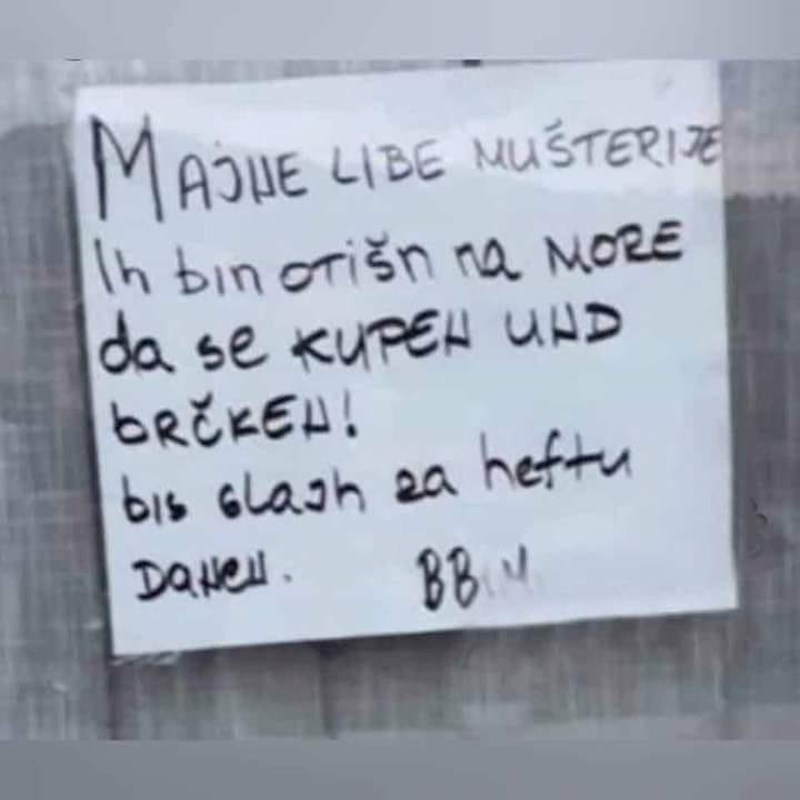 MAJNE LIBE MUŠTERIJE
Ih bin otišn na MORE
da se KUPEN UND
BRČKEN!
bis glajh za heftu
DaNeN. BB